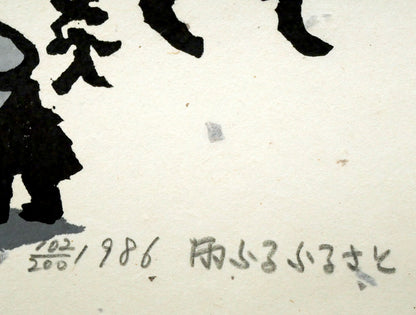 102/200 1986 雨ふるふるさと